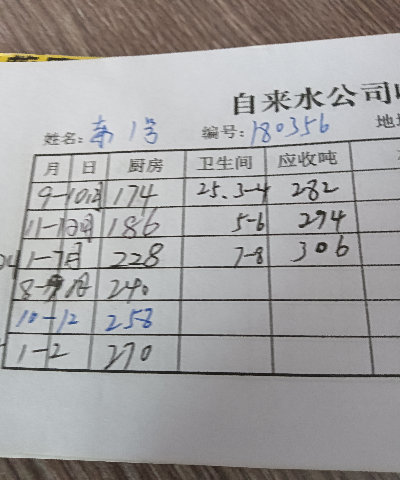 自来水公司
姓名: 南1号 编号: 180356 地
月 日 厨房 卫生间 应收吨
9-10月 174 25.3-4 282
11-12月 186 5-6 294
1-7月 228 7-8 306
240
10-12 258
1-2 270